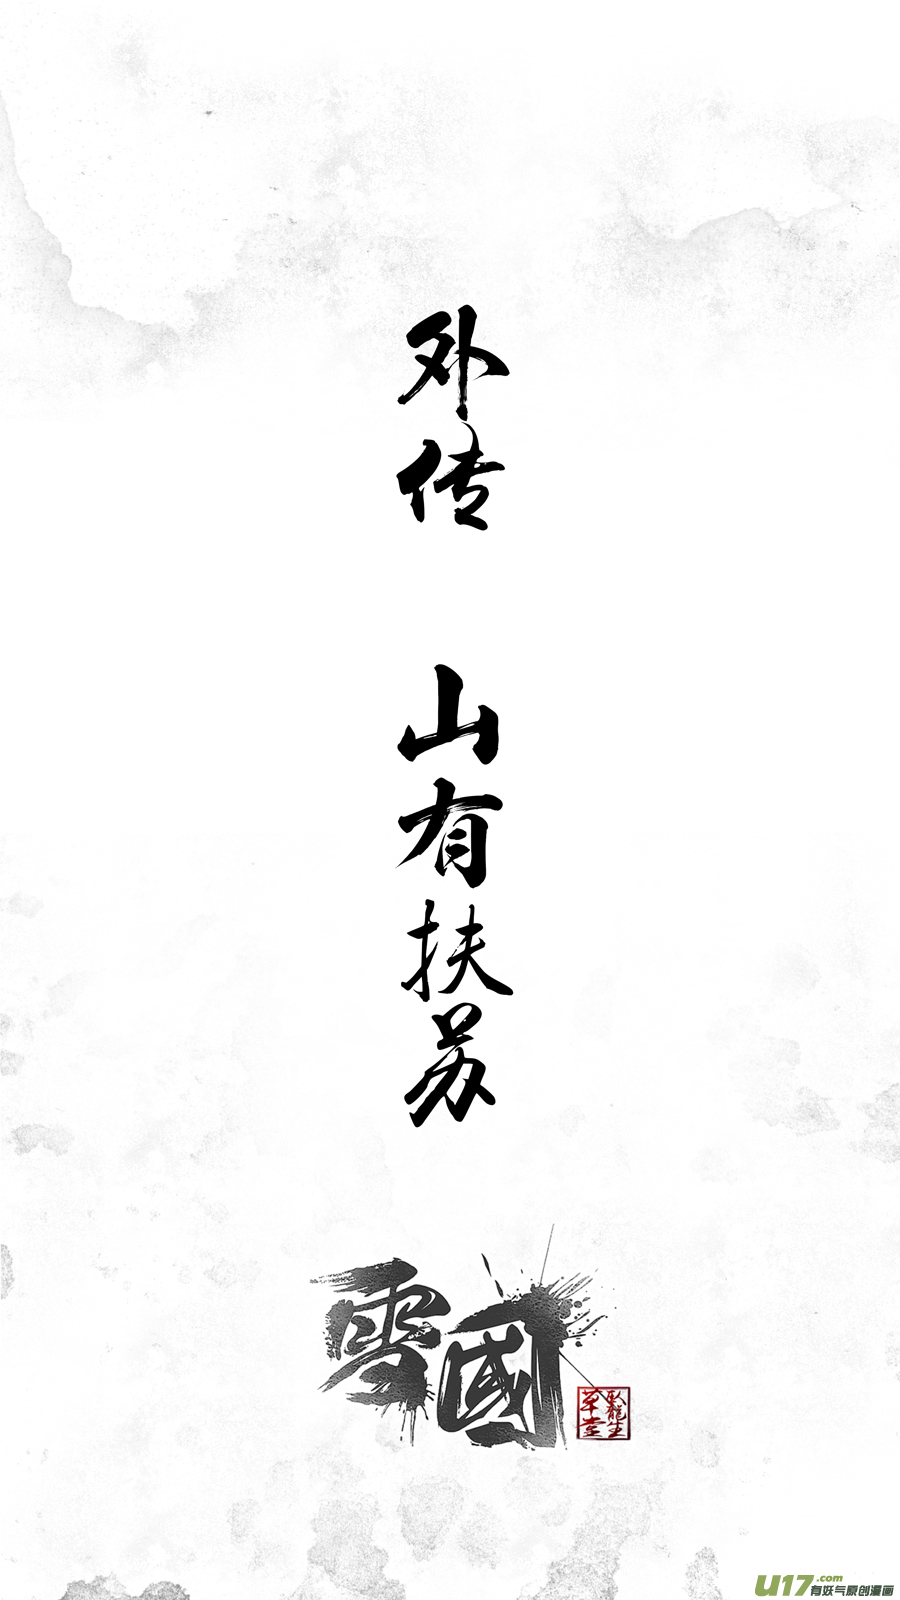 外传
山有扶苏
雪國
卧龍生
草堂
U17.com
有妖气原创漫画